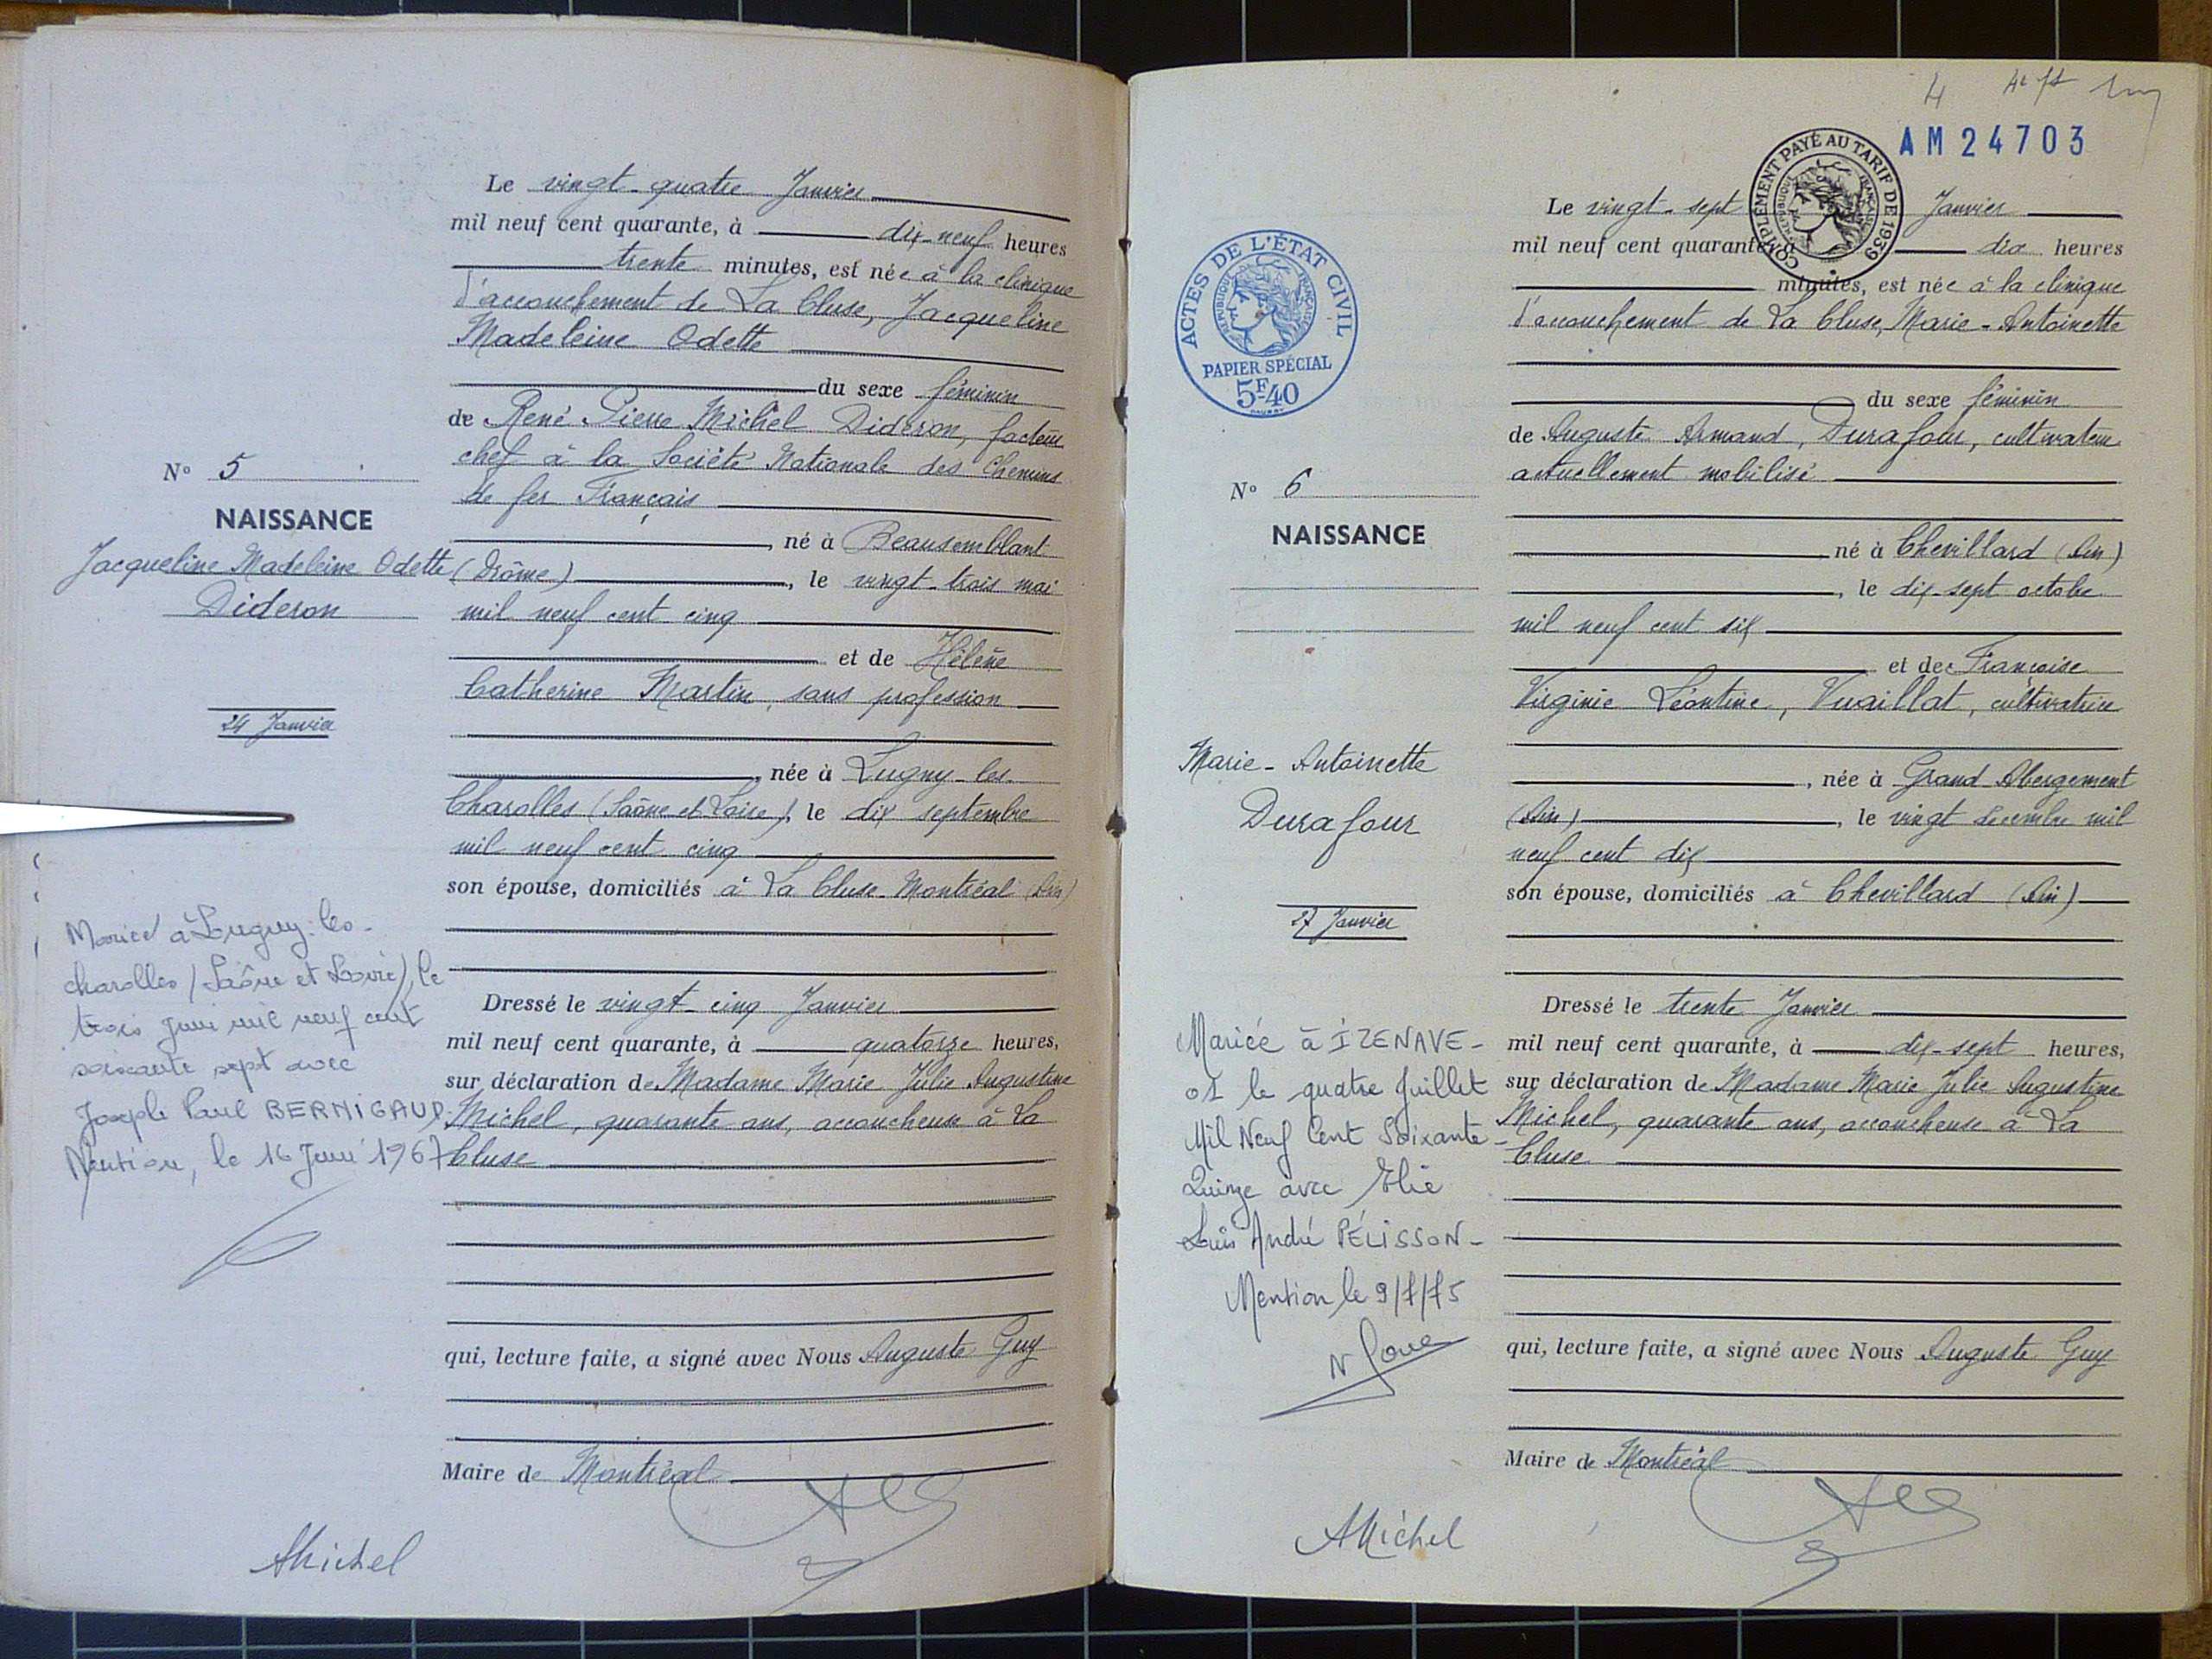 Le vingt-quatre Janvier
mil neuf cent quarante, à dix-neuf heures
trente minutes, est née à la clinique
d'accouchement de La Cluse, Jacqueline
Madeleine Odette
du sexe féminin
de René Pierre Michel Dideron, facteur
chef à la Société Nationale des Chemins
de fer Français
N° 5
NAISSANCE
Jacqueline Madeleine Odette
Dideron
, né à Beausemblant
(Drôme), le vingt-trois mai
mil neuf cent cinq
et de Hélène
Catherine Martin, sans profession
24 Janvier
, née à Lugny-les-
Charolles (Saône et Loire), le dix septembre
mil neuf cent cinq
son épouse, domiciliés à La Cluse-Montréal (Ain)
Mariée à Lugny-les-
charolles (Saône et Loire), le
trois juin mil neuf cent
soixante sept avec
Joseph Paul BERNIGAUD.
Mention, le 16 Juin 1967
Dressé le vingt-cinq Janvier
mil neuf cent quarante, à quatorze heures,
sur déclaration de Madame Marie Julie Augustine
Michel, quarante ans, accoucheuse à La
Cluse
qui, lecture faite, a signé avec Nous Auguste Guy
Maire de Montréal
AMichel
4
AM 24703
COMPLÉMENT PAYÉ AU TARIF DE 1939
RÉPUBLIQUE FRANÇAISE
ACTES DE L'ÉTAT CIVIL
RÉPUBLIQUE FRANÇAISE
PAPIER SPÉCIAL
5F40
Le vingt-sept Janvier
mil neuf cent quarante, à dix heures
minutes, est née à la clinique
d'accouchement de La Cluse, Marie-Antoinette
du sexe féminin
de Auguste Armand, Durafour, cultivateur
actuellement mobilisé
N° 6
NAISSANCE
né à Chevillard (Ain)
, le dix-sept octobre
mil neuf cent six
et de Françoise
Virginie Léontine, Vuaillat, cultivatrice
Marie-Antoinette
Durafour
, née à Grand Abergement
(Ain), le vingt décembre mil
neuf cent dix
son épouse, domiciliés à Chevillard (Ain)
27 Janvier
Mariée à IZENAVE-
01 le quatre Juillet
Mil Neuf Cent Soixante-
Quinze avec Elie
Louis André PÉLISSON-
Mention le 9/7/75
Dressé le trente Janvier
mil neuf cent quarante, à dix-sept heures,
sur déclaration de Madame Marie Julie Augustine
Michel, quarante ans, accoucheuse à La
Cluse
qui, lecture faite, a signé avec Nous Auguste Guy
Maire de Montréal
AMichel